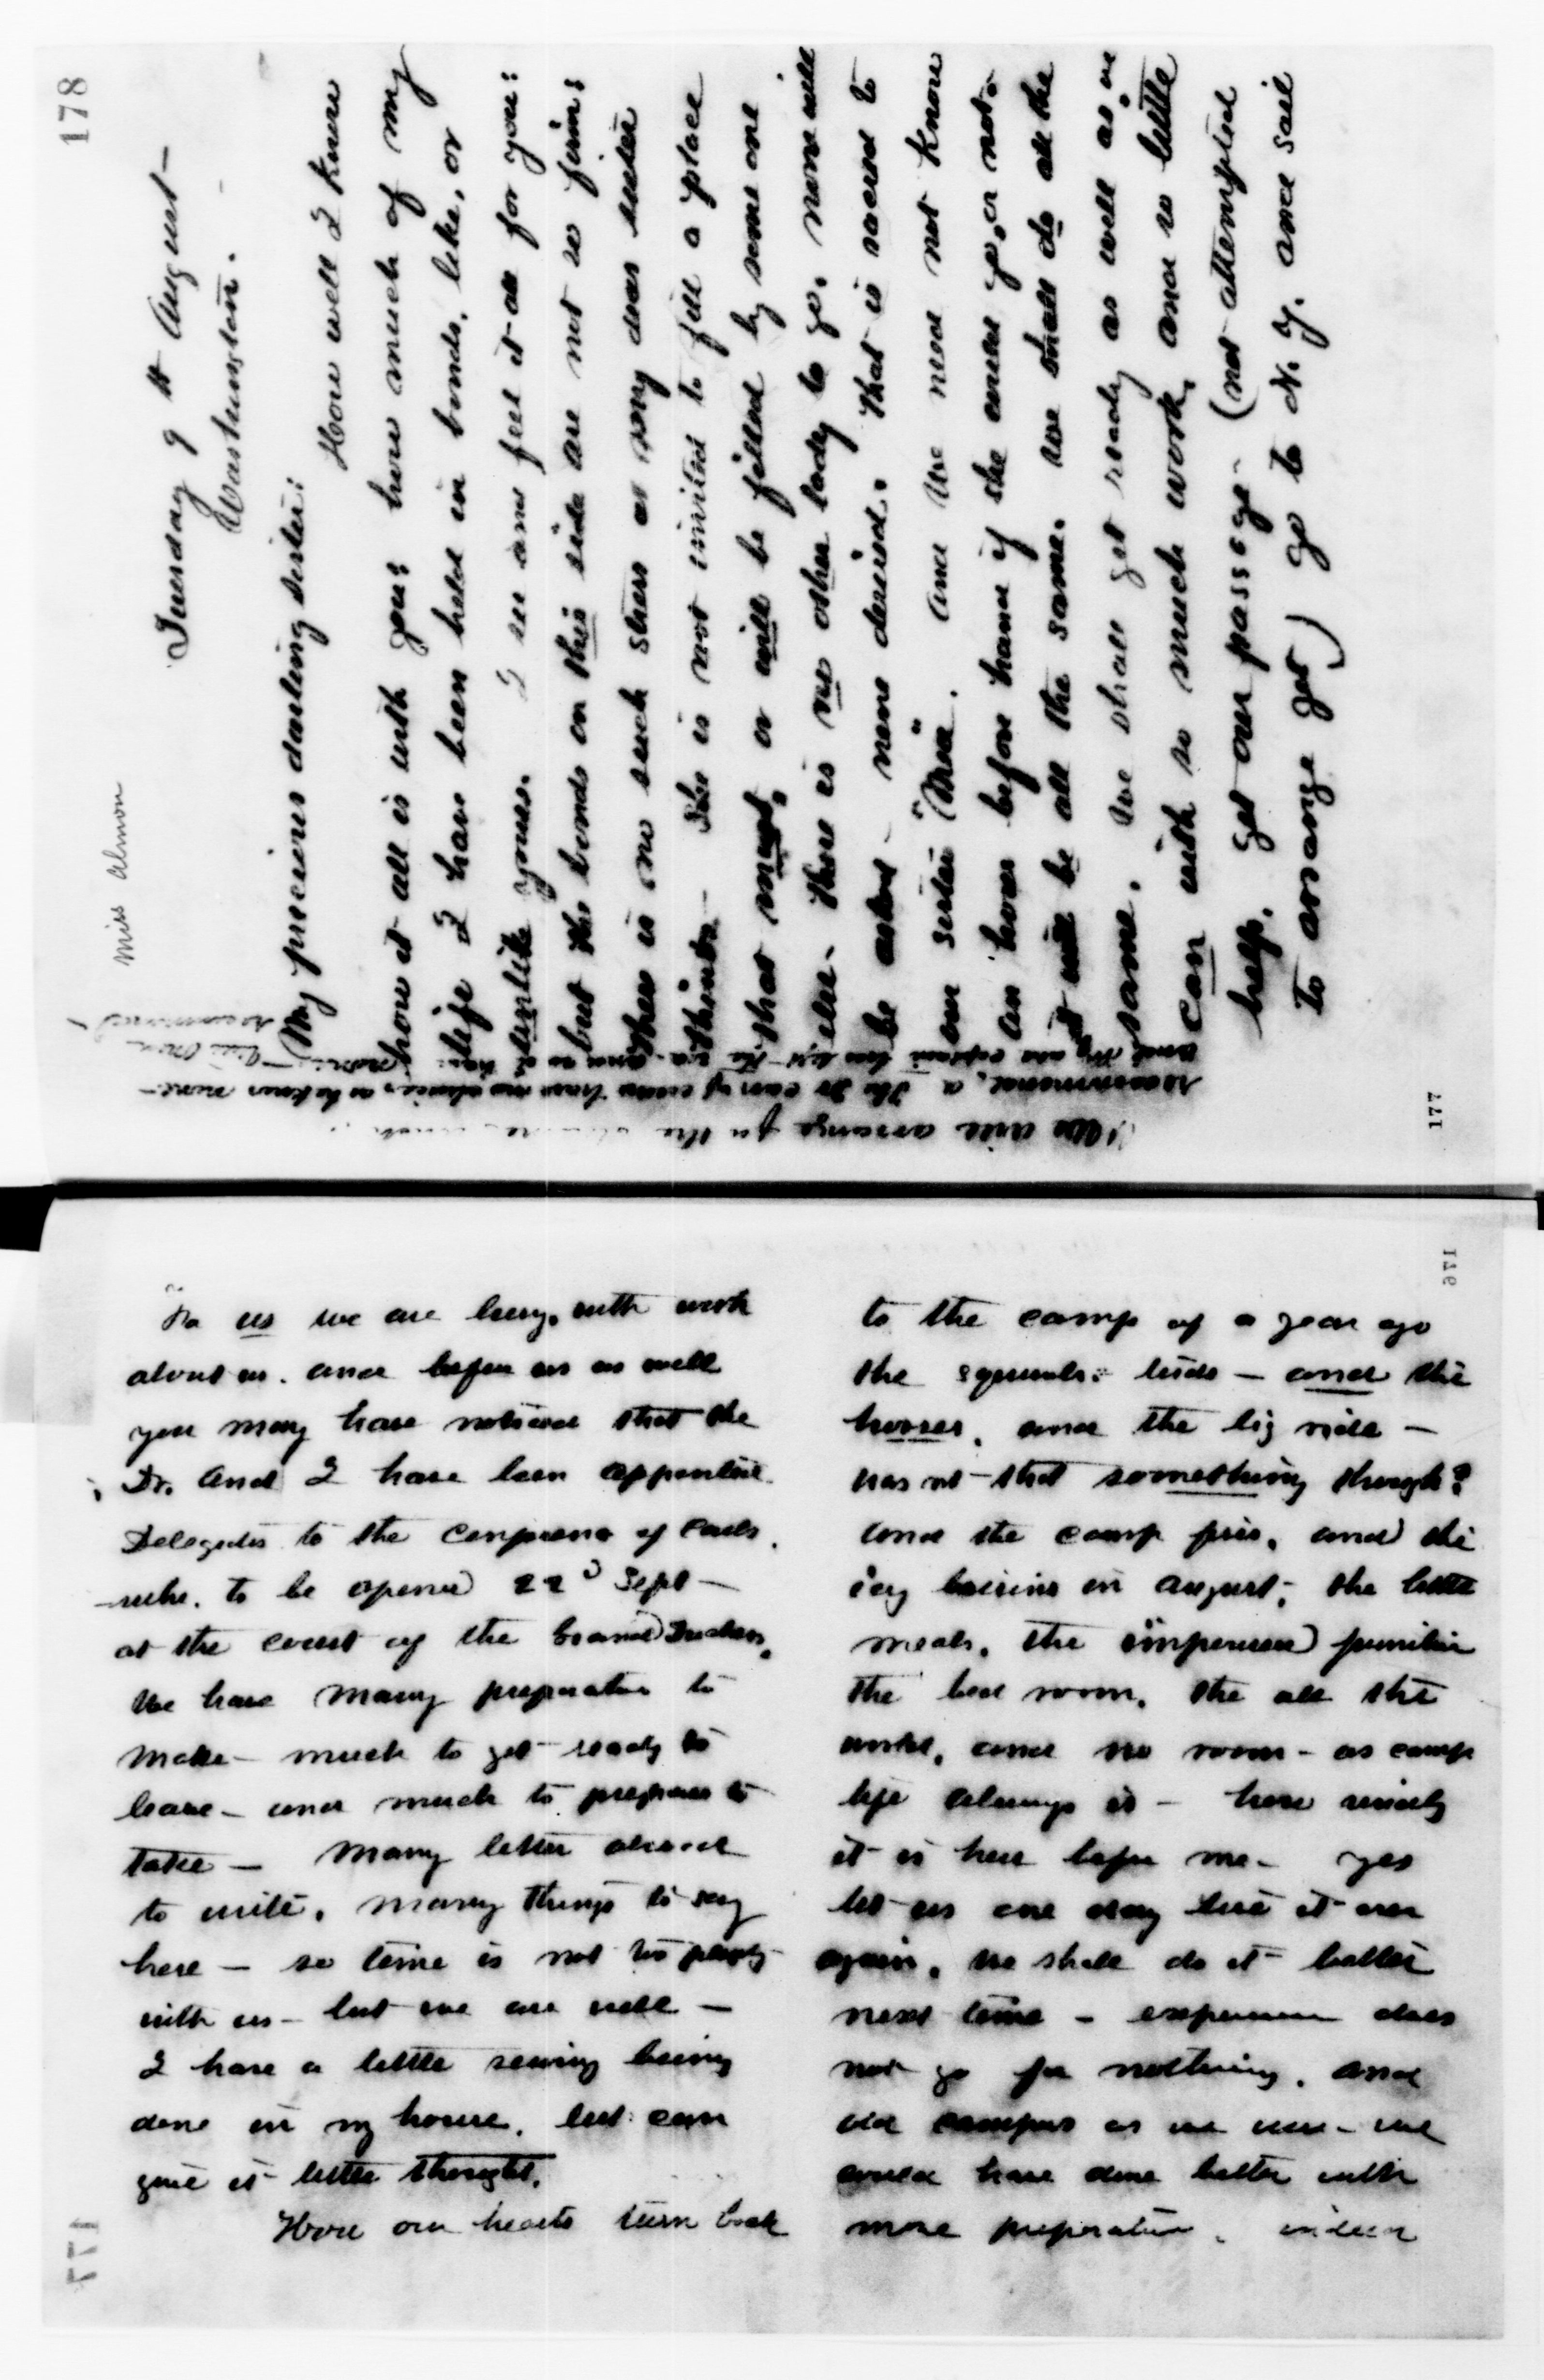 178
Miss Almon
Tuesday 9th August —
Washington.
My precious darling sister:
How well I know
how it all is with you: how much of my
life I have been held in bonds, like, or
unlike yours. I see and feel it all for you:
but the bonds on this side are not so firm;
there is no such stress as my dear sister
thinks — She is not invited to fill a place
that must, or will be filled by some one
else. There is no other lady to go, none will
be asked — none desired. That is sacred to
our sister "Mea". And we need not know
an hour before hand if she could go, or not.
it will be all the same. we shall do all the
same. We shall get ready as well as we
can with so much work, and so little
help. get our passage — (not attempted
to arrange yet) go to N. Y. and sail
We will arrange for the
177
176
us we are busy, with work
about us. and before us as well
you may have noticed that the
Dr. and I have been appointed
Delegates to the Conference of Carls
ruhe. to be opened 22d Sept —
at the court of the Grand Duchess.
We have many preparation to
make — much to get ready to
leave — and much to prepare to
take — Many letter abroad
to write, many things to say
here — so time is not too plenty
with us — but we are well —
I have a little sewing being
done in my house, but can
give it little thought.
How our hearts turn back
to the camp of a year ago
the squirrels: birds — and the
horses, and the big ride —
was not that something though?
and the camp fires, and the
icy basins in August, the little
meals, the improvised furniture
the bed room, the all the
world, and no room — as camp
life always is — how nicely
it is here before me — yes
let us one day live it over
again, we shall do it better
next time — experience does
not go for nothing, and
old campers as we were — we
could have done better with
more preparation. indeed
177